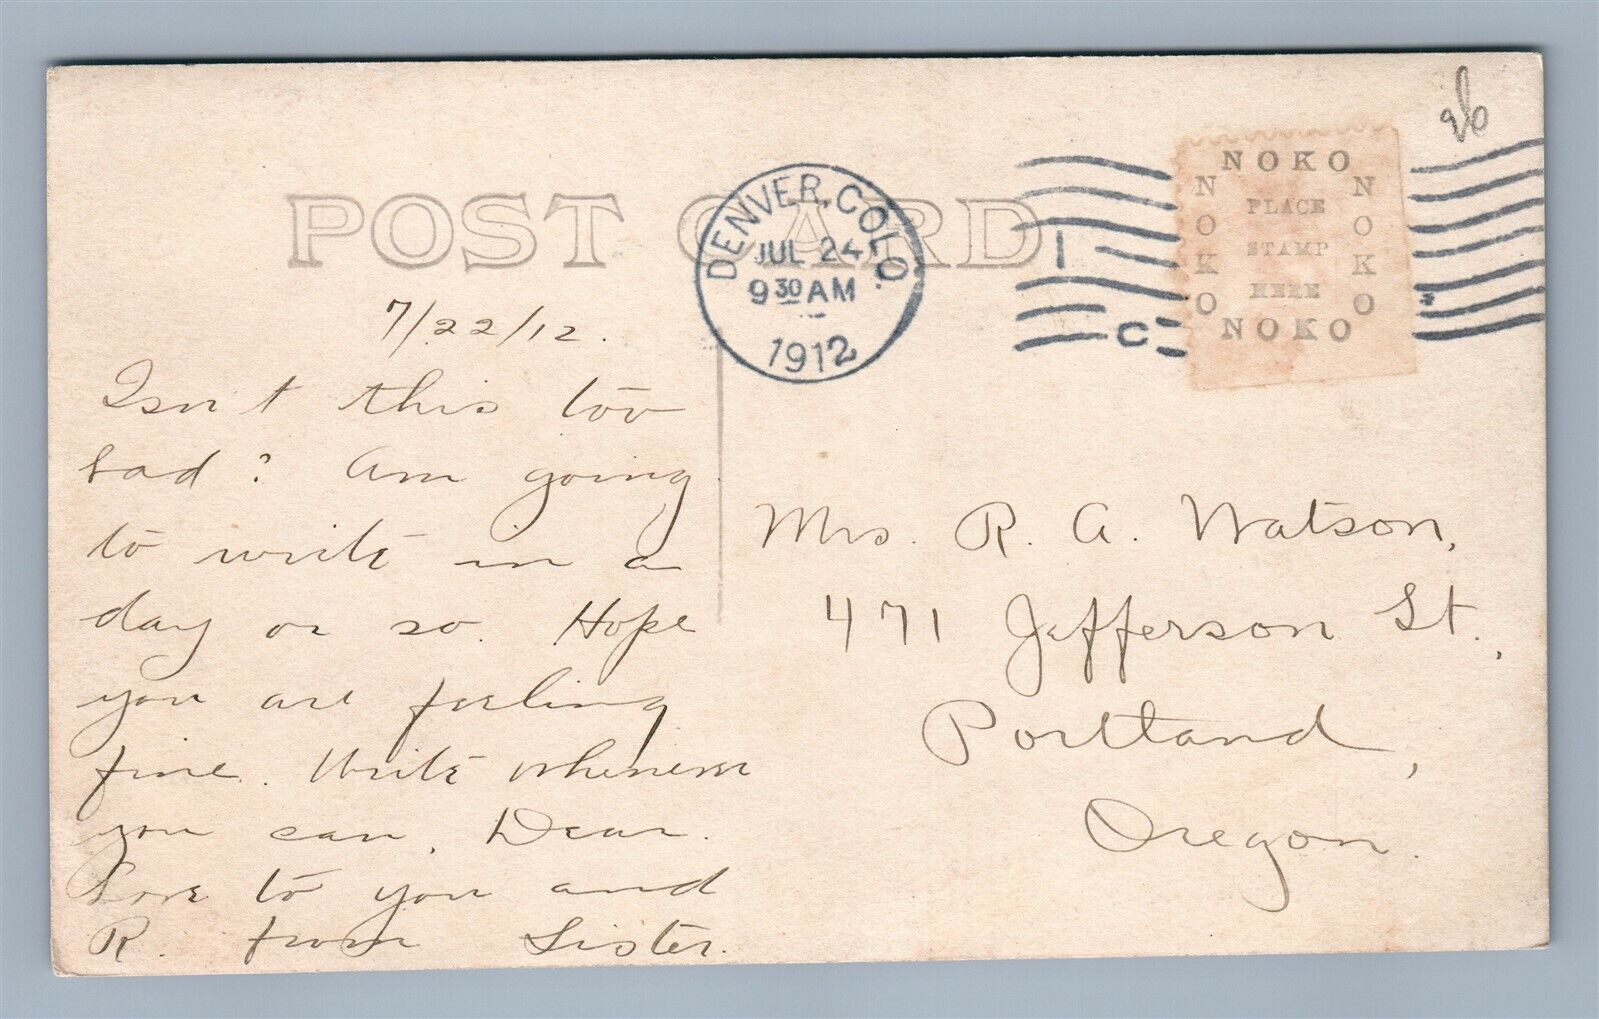 POST CARD
DENVER, COLO.
JUL 24
9 30 AM
1912
NOKO
NOKO
NOKO
NOKO
PLACE
STAMP
HERE
7/22/12.
Isn't this too
bad? Am going
to write in a
day or so. Hope
you are feeling
fine. Write whenever
you can. Dear
Love to you and
R. from Sister.
Mrs. R. A. Watson,
471 Jefferson St.,
Portland,
Oregon.